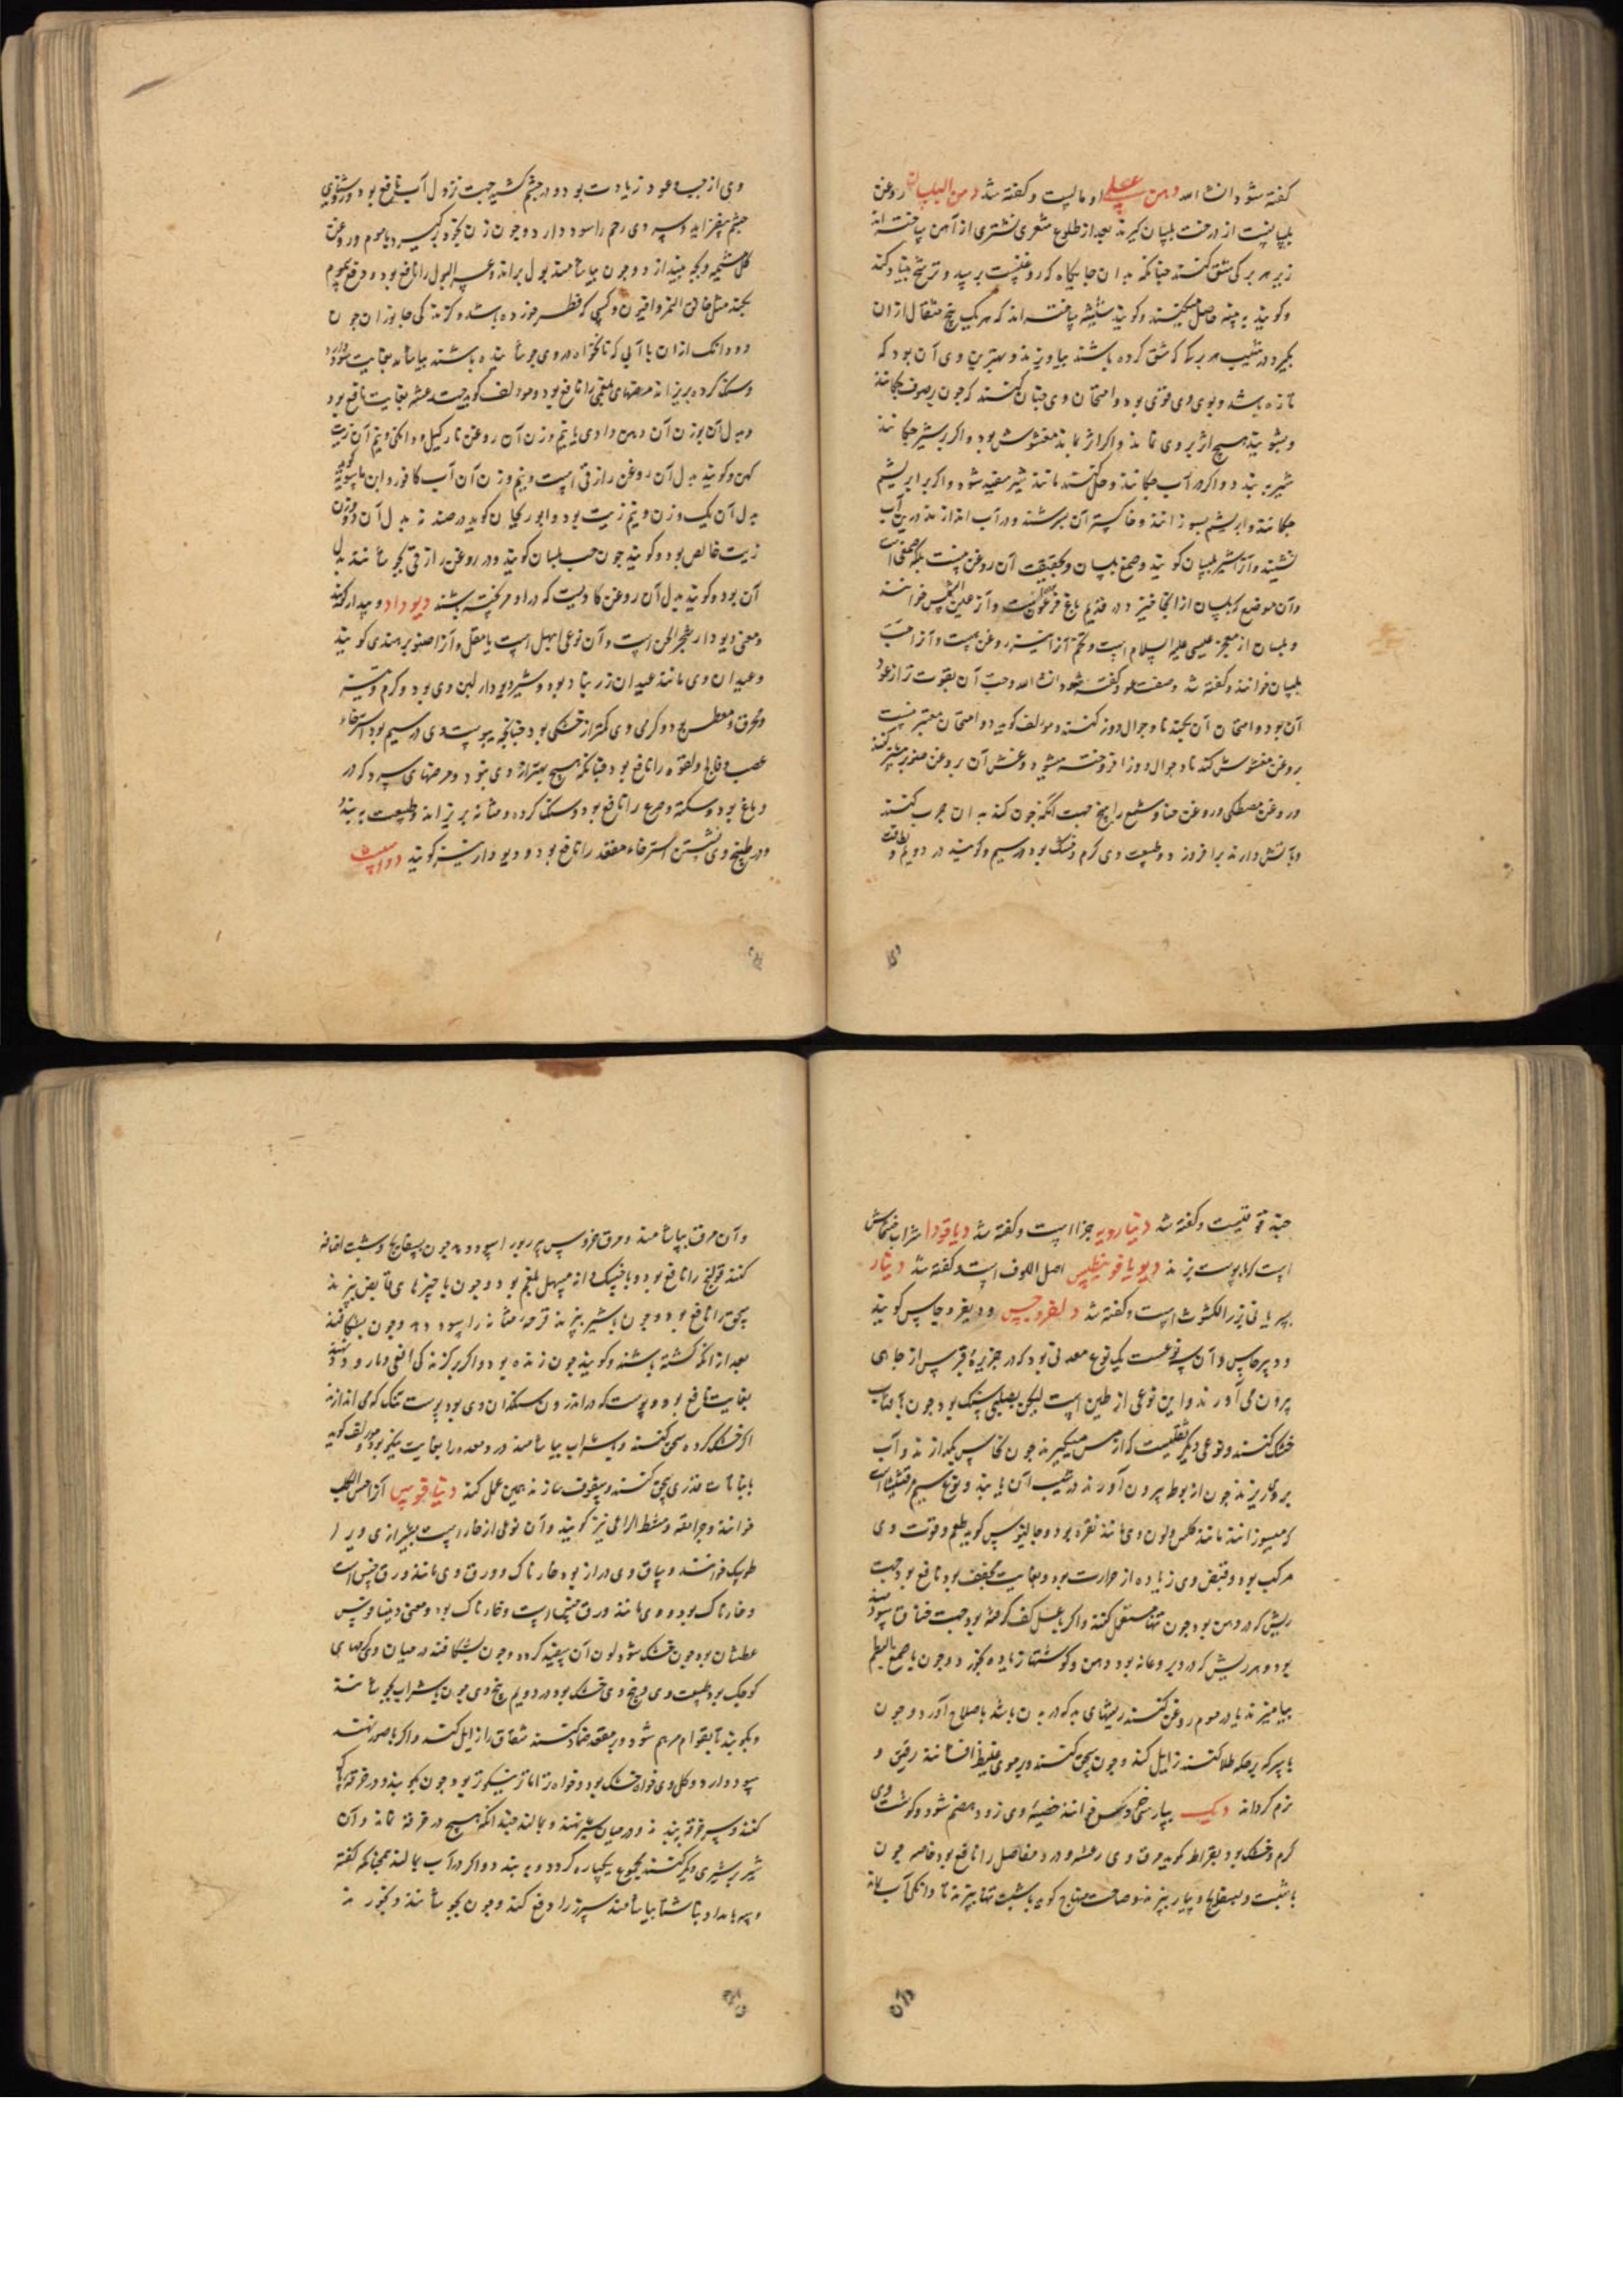 کفته شود انشاالله دهن عسلی اومالیست و کفته شد دهن البلسان روغن
بلسانست از درخت بلسان کیرند بعد از طلوع شعری نشتری از آهن ساخته اند
زیر هر برکی شق کنند چنانکه بدان جایکاه که روغنیست برسد و ترشح بنیاد کند
و کویند به پنبه حاصل میکنند و کویند شیشه ساخته اند که هر یک پنج مثقال از ان
بکیرد در شیب هر برکی که شق کرده باشند بیاویزند و بهترین وی آن بود که
تازه باشد و بوی وی قوی بود و امتحان وی چنان کنند که چون بر صوف چکانند
و بشویند هیچ اثر بر وی نماند و اکر اثر بماند مغشوش بود و اکر بر شیر چکانند
شیر ببندد و اکر در آب چکانند و حل کنند مانند شیر سفید شود و اکر بر ابریشم
چکانند و ابریشم بسوزانند و خاکستر آن بسرشند و در آب اندازند در بن آب
نشیند و آنرا شیر بلسان کویند و صمغ بلسان و بحقیقت آن روغن نیست بلکه صمغی است
و آن موضع که بلسان از انجا خیزد در قدیم باغ فرعون است و آنرا عین الشمس خوانند
و بلسان از معجز عیسی علیه السلام است و تخم آنرا نیز روغن هست و آنرا حب
بلسان خوانند و کفته شد و صفت عود کفته شود انشاالله و حب آن بقوت تر از عود
آن بود و امتحان آن بجند تا و جوال دوز کنند و مولف کوید و امتحان معتبر نیست
روغن مغشوش کند تا و جوال دوز افروخته میشود و غش آن بروغن صنوبر نیز کنند
و روغن مصطکی و روغن حنا و شمع
و بآتش دارند برافروزد و طبیعت وی کرم و خشک بود در سیم و کویند در دویم و لطافت
وی از حب و عود زیادت بود و در چشم کشیدن جهت نزول آب نافع بود و روشنایی
چشم بیفزاید و سردی رحم را سود دارد و چون زن بخود برکیرد با موم و روغن
کل مشیمه و بچه بیندازد و چون بیاشامند بول براند و عسر البول را نافع بود و دفع سموم
بکند مثل خانق النمر و افیون و کسی که فطر خورده باشد و کزندکی جانوران چون
دو دانک از ان با آبی که نانخواه در وی جوشانیده باشند بیاشامند بغایت سود دارد
و سنک کرده بریزاند مرضهای بلغمی را نافع بود و مولف کوید جهت رعشه بغایت نافع بود
و بدل آن بوزن آن دهن وادی یا نیم وزن آن روغن نارکیل و دانکی و نیم آن زیت
کهن و کویند بدل آن روغن رازقی است و نیم وزن آن آب کافور و ابن ماسویه کوید
بدل آن یک وزن و نیم زیت بود و ابوریحان کوید در صیدنه بدل آن دو وزن
زیت خالص بود و کویند چون حب بلسان کویند و در روغن رازقی بجوشانند بدل
آن بود و کویند بدل آن روغن کاویست که در او مر پخته باشند دیودار و بیدار کویند
و معنی دیودار شجر الجن است و آن نوعی ابهل است با مقل و آنرا صنوبر هندی کویند
و عیدان وی مانند عیدان زرنباد بود و شیر دیودار لبن وی بود و کرم و تیز
و محرق و معطس بود و کرمی وی کمتر از خشکی بود چنانکه یبوست وی در سیم بود استرخاء
عصب و فالج و لقوه را نافع بود چنانکه هیچ بهتر از وی نبود و مرضهای سرد که در
دماغ بود و سکته و صرع را نافع بود و سنک کرده و مثانه بریزاند و طبیعت ببندد
و در طبیخ وی نشستن استرخاء مقعد را نافع بود و دیودار نیز کویند
حبه قوقنیست و کفته شد دیناررویه حزا است و کفته شد دیاقودا شراب خشخاش
است که با پوست پزند دیویاقونیطس اصل اللوف است و کفته شد دینار
بسریانی بزر الکشوث است و کفته شد دیفروجس و دیفروجاس کویند
و دیرجاس و آن سه نوعست یک نوع معدنی بود که در جزیرهٔ قبرس از جاهی
بیرون می آورند و این نوعی از طین است لیکن بصلبی سنک بود چون بآفتاب
خشک کنند و نوعی دیکر ثقلیست که از مس میکیرند چون نحاس بکدازند و آب
بر وی ریزند چون از بوطه بیرون آورند در شیب آن یابند و نوع سیم مرقشیثا است
که میسوزانند مانند کلس و لون وی مانند نقره بود و جالینوس کوید طعم و قوت وی
مرکب بود و قبض وی زیاده از حرارت بود و بغایت مجفف بود نافع بود جهت
ریش که در دهن بود چون تنها مستعمل کنند و اکر با عسل کف کرفته بود جهت خناق سودمند
بود و هر ریش که در دبر و عانه بود و دهن و کوشتها زیاده بخورد و چون با صمغ البطم
بیامیزند یا در موم روغن کنند ریشهای بد که در بدن باشد باصلاح آورد و چون
با سرکه بر حکه طلا کنند زایل کند و چون سحق کنند و بر موی غلیظ افشانند رقیق و
نرم کرداند دیک بپارسی خروس خوانند خصیهٔ وی زود هضم شود و کوشت وی
کرم و خشک بود بقراط کوید مرق وی رعشه و درد مفاصل را نافع بود خاصه چون
با شبت و بسفایج و بیار بپزند و صاحب منهاج کوید باشبت تنها بپزند تا دانکی آب بماند
و آن مرق بیاشامند و مرق خروس پیر ربو را سود دهد چون بسفایج و شبت اضافه
کنند قولنج را نافع بود و با خسک دانه مسهل بلغم بود و چون با چیزهای قابض بپزند
سحج را نافع بود و چون با شیر بپزند قرحهٔ مثانه را سود دهد و چون بشکافند
بعد از آنکه کشته باشند و کویند چون زنده بود و اکر بر کزندکی افعی و مار و نهند
بغایت نافع بود و پوست که در اندرون سنکدان وی بود پوست تنک که می اندازند
اکر خشک کرده سحق کنند و با شراب بیاشامند درد معده را بغایت نیکو بود مولف کوید
با نبات قدری سحق کنند و سفوف سازند همین عمل کند دیناقوس آنرا خس الکلب
خوانند و جرامقه و مشط الراعی نیز کویند و آن نوعی از خار است بشیرازی ویرا
طوسک خوانند و ساق وی دراز بود خارناک و ورق وی مانند ورق خس است
و خارناک بود و وی مانند ورق خس است و خارناک بود و معنی دیناقوس
عطشان بود چون خشک شود لون آن سفید کردد و چون بشکافند در میان وی کرمهای
کوچک بود طبیعت وی و بیخ وی خشک بود در دویم بیخ وی چون با شراب بجوشانند
و بکوبند تا بقوام مرهم شود و بر مقعد ضماد کنند شقاق را زایل کند و اکر بناصور نهند
سود دارد و کل وی خواه خشک بود و خواه تر اما تر نیکوتر بود چون بکوبند و در خرقه پاک
کنند و سر خرقه ببندند و در میان شیر نهند و بمالند چندانکه هیچ در خرقه نماند و آن
شیر بر شیری دیکر کنند مجموع یکباره کردد و ببندد و اکر در آب بمالند همچنانکه کفته
و سه بامداد ناشتا بیاشامند سپرز را دفع کند و چون بجوشانند و بخورند